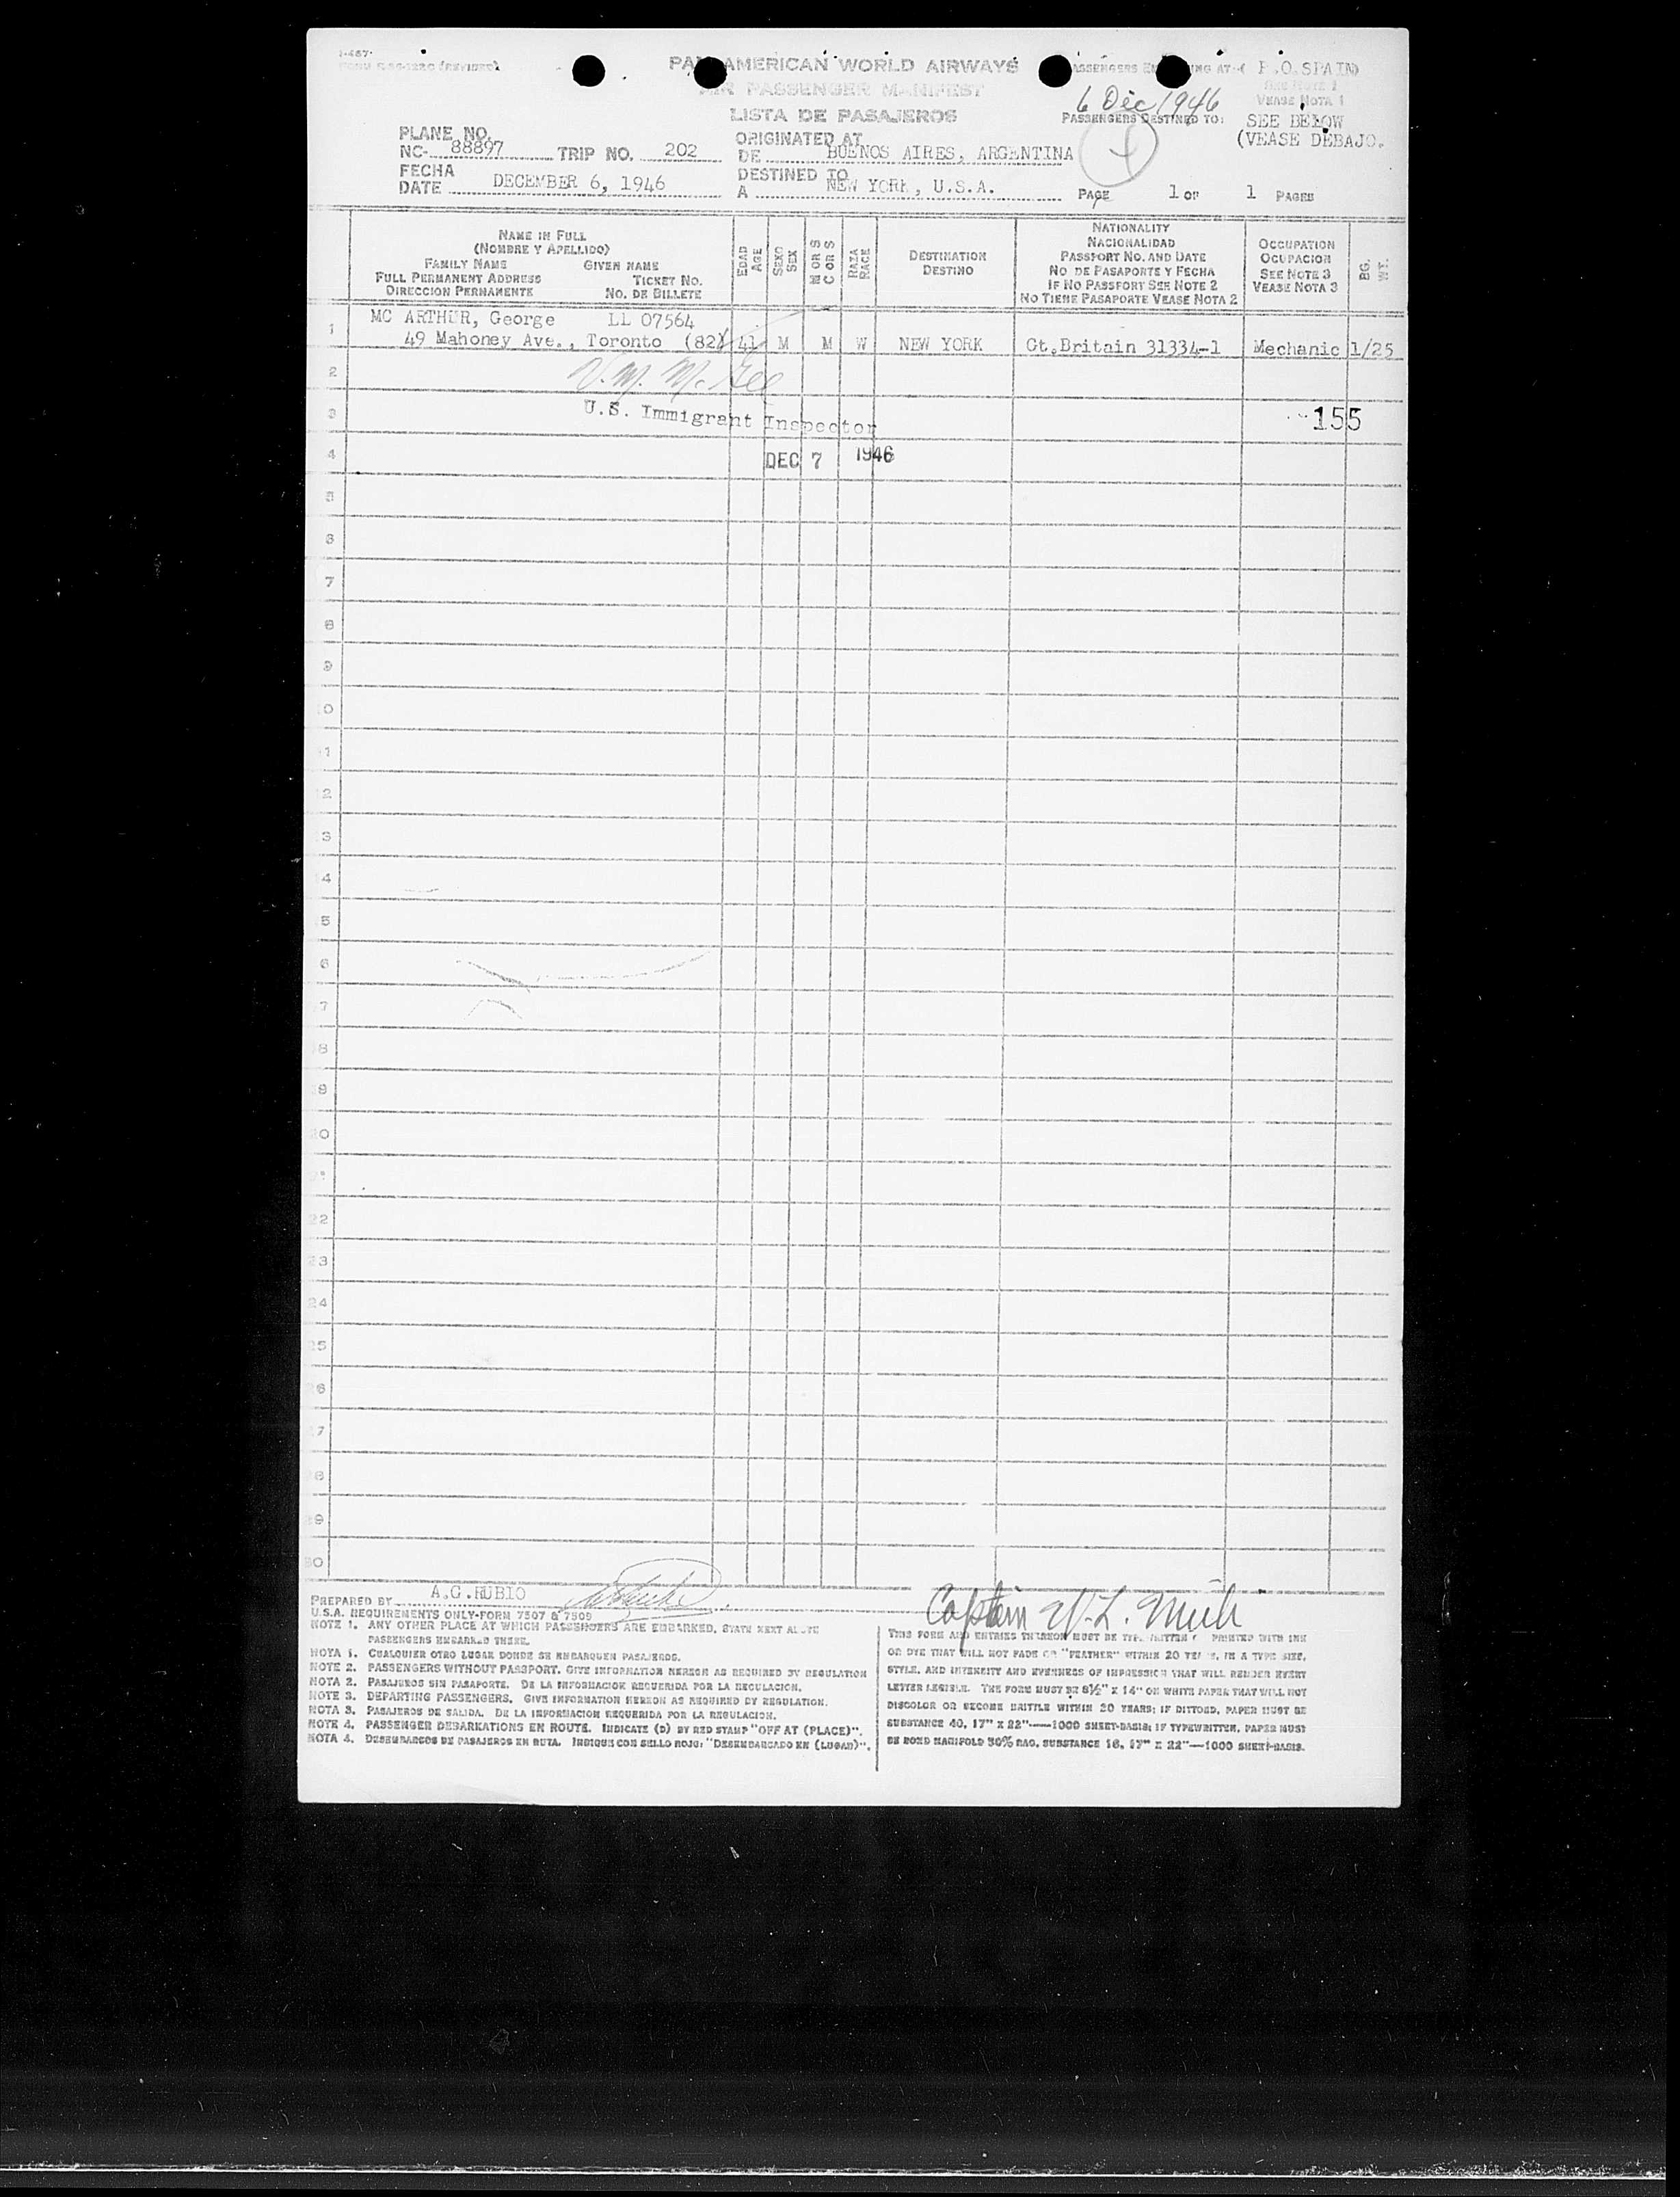 PAN AMERICAN WORLD AIRWAYS
AIR PASSENGER MANIFEST
LISTA DE PASAJEROS
P.O.SPAIN
SEE NOTE 1
VEASE NOTA 1
6 Dec 1946
PASSENGERS DESTINED TO:
SEE BELOW
(VEASE DEBAJO.
PLANE NO.
NC- 88897 TRIP NO. 202
ORIGINATED AT
DE BUENOS AIRES, ARGENTINA
FECHA
DATE DECEMBER 6, 1946
DESTINED TO
A NEW YORK, U.S.A.
PAGE 1 OF 1 PAGES
NAME IN FULL
(NOMBRE Y APELLIDO)
FAMILY NAME GIVEN NAME
FULL PERMANENT ADDRESS TICKET NO.
DIRECCION PERMANENTE NO. DE BILLETE
EDAD
AGE
SEXO
SEX
M OR S
C OR S
RAZA
RACE
DESTINATION
DESTINO
NATIONALITY
NACIONALIDAD
PASSPORT NO. AND DATE
NO DE PASAPORTE Y FECHA
IF NO PASSPORT SEE NOTE 2
NO TIENE PASAPORTE VEASE NOTA 2
OCCUPATION
OCUPACION
SEE NOTE 3
VEASE NOTA 3
BG.
WT.
1 MC ARTHUR, George LL 07564
49 Mahoney Ave., Toronto (82) 41 M M W NEW YORK Gt.Britain 31334-1 Mechanic 1/25
2
3 U.S. Immigrant Inspector 155
4 DEC 7 1946
5
6
7
8
9
10
11
12
13
14
15
16
17
18
19
20
21
22
23
24
25
26
27
28
29
30
PREPARED BY A.G.RUBIO
Captain W.L.
U.S.A. REQUIREMENTS ONLY-FORM 7507 & 7509
NOTE 1. ANY OTHER PLACE AT WHICH PASSENGERS ARE EMBARKED, STATE NEXT ABOVE
PASSENGERS EMBARKED THERE.
NOTA 1. CUALQUIER OTRO LUGAR DONDE SE EMBARQUEN PASAJEROS.
NOTE 2. PASSENGERS WITHOUT PASSPORT. GIVE INFORMATION HEREON AS REQUIRED BY REGULATION
NOTA 2. PASAJEROS SIN PASAPORTE. DE LA INFORMACION REQUERIDA POR LA REGULACION.
NOTE 3. DEPARTING PASSENGERS. GIVE INFORMATION HEREON AS REQUIRED BY REGULATION.
NOTA 3. PASAJEROS DE SALIDA. DE LA INFORMACION REQUERIDA POR LA REGULACION.
NOTE 4. PASSENGER DEBARKATIONS EN ROUTE. INDICATE (D) BY RED STAMP "OFF AT (PLACE)".
NOTA 4. DESEMBARCOS DE PASAJEROS EN RUTA. INDIQUE CON SELLO ROJO: "DESEMBARCADO EN (LUGAR)".
THIS FORM AND ENTRIES THEREON MUST BE TYPEWRITTEN PRINTED WITH INK
OR DYE THAT WILL NOT FADE OR "FEATHER" WITHIN 20 YEARS, IN A TYPE SIZE,
STYLE, AND INTENSITY AND EVENNESS OF IMPRESSION THAT WILL RENDER EVERY
LETTER LEGIBLE. THE FORM MUST BE 8½" X 14" ON WHITE PAPER THAT WILL NOT
DISCOLOR OR BECOME BRITTLE WITHIN 20 YEARS; IF DITTOED, PAPER MUST BE
SUBSTANCE 40, 17" X 22"—1000 SHEET-BASIS; IF TYPEWRITTEN, PAPER MUST
BE BOND MANIFOLD 50% RAG, SUBSTANCE 16, 17" X 22"—1000 SHEET-BASIS.